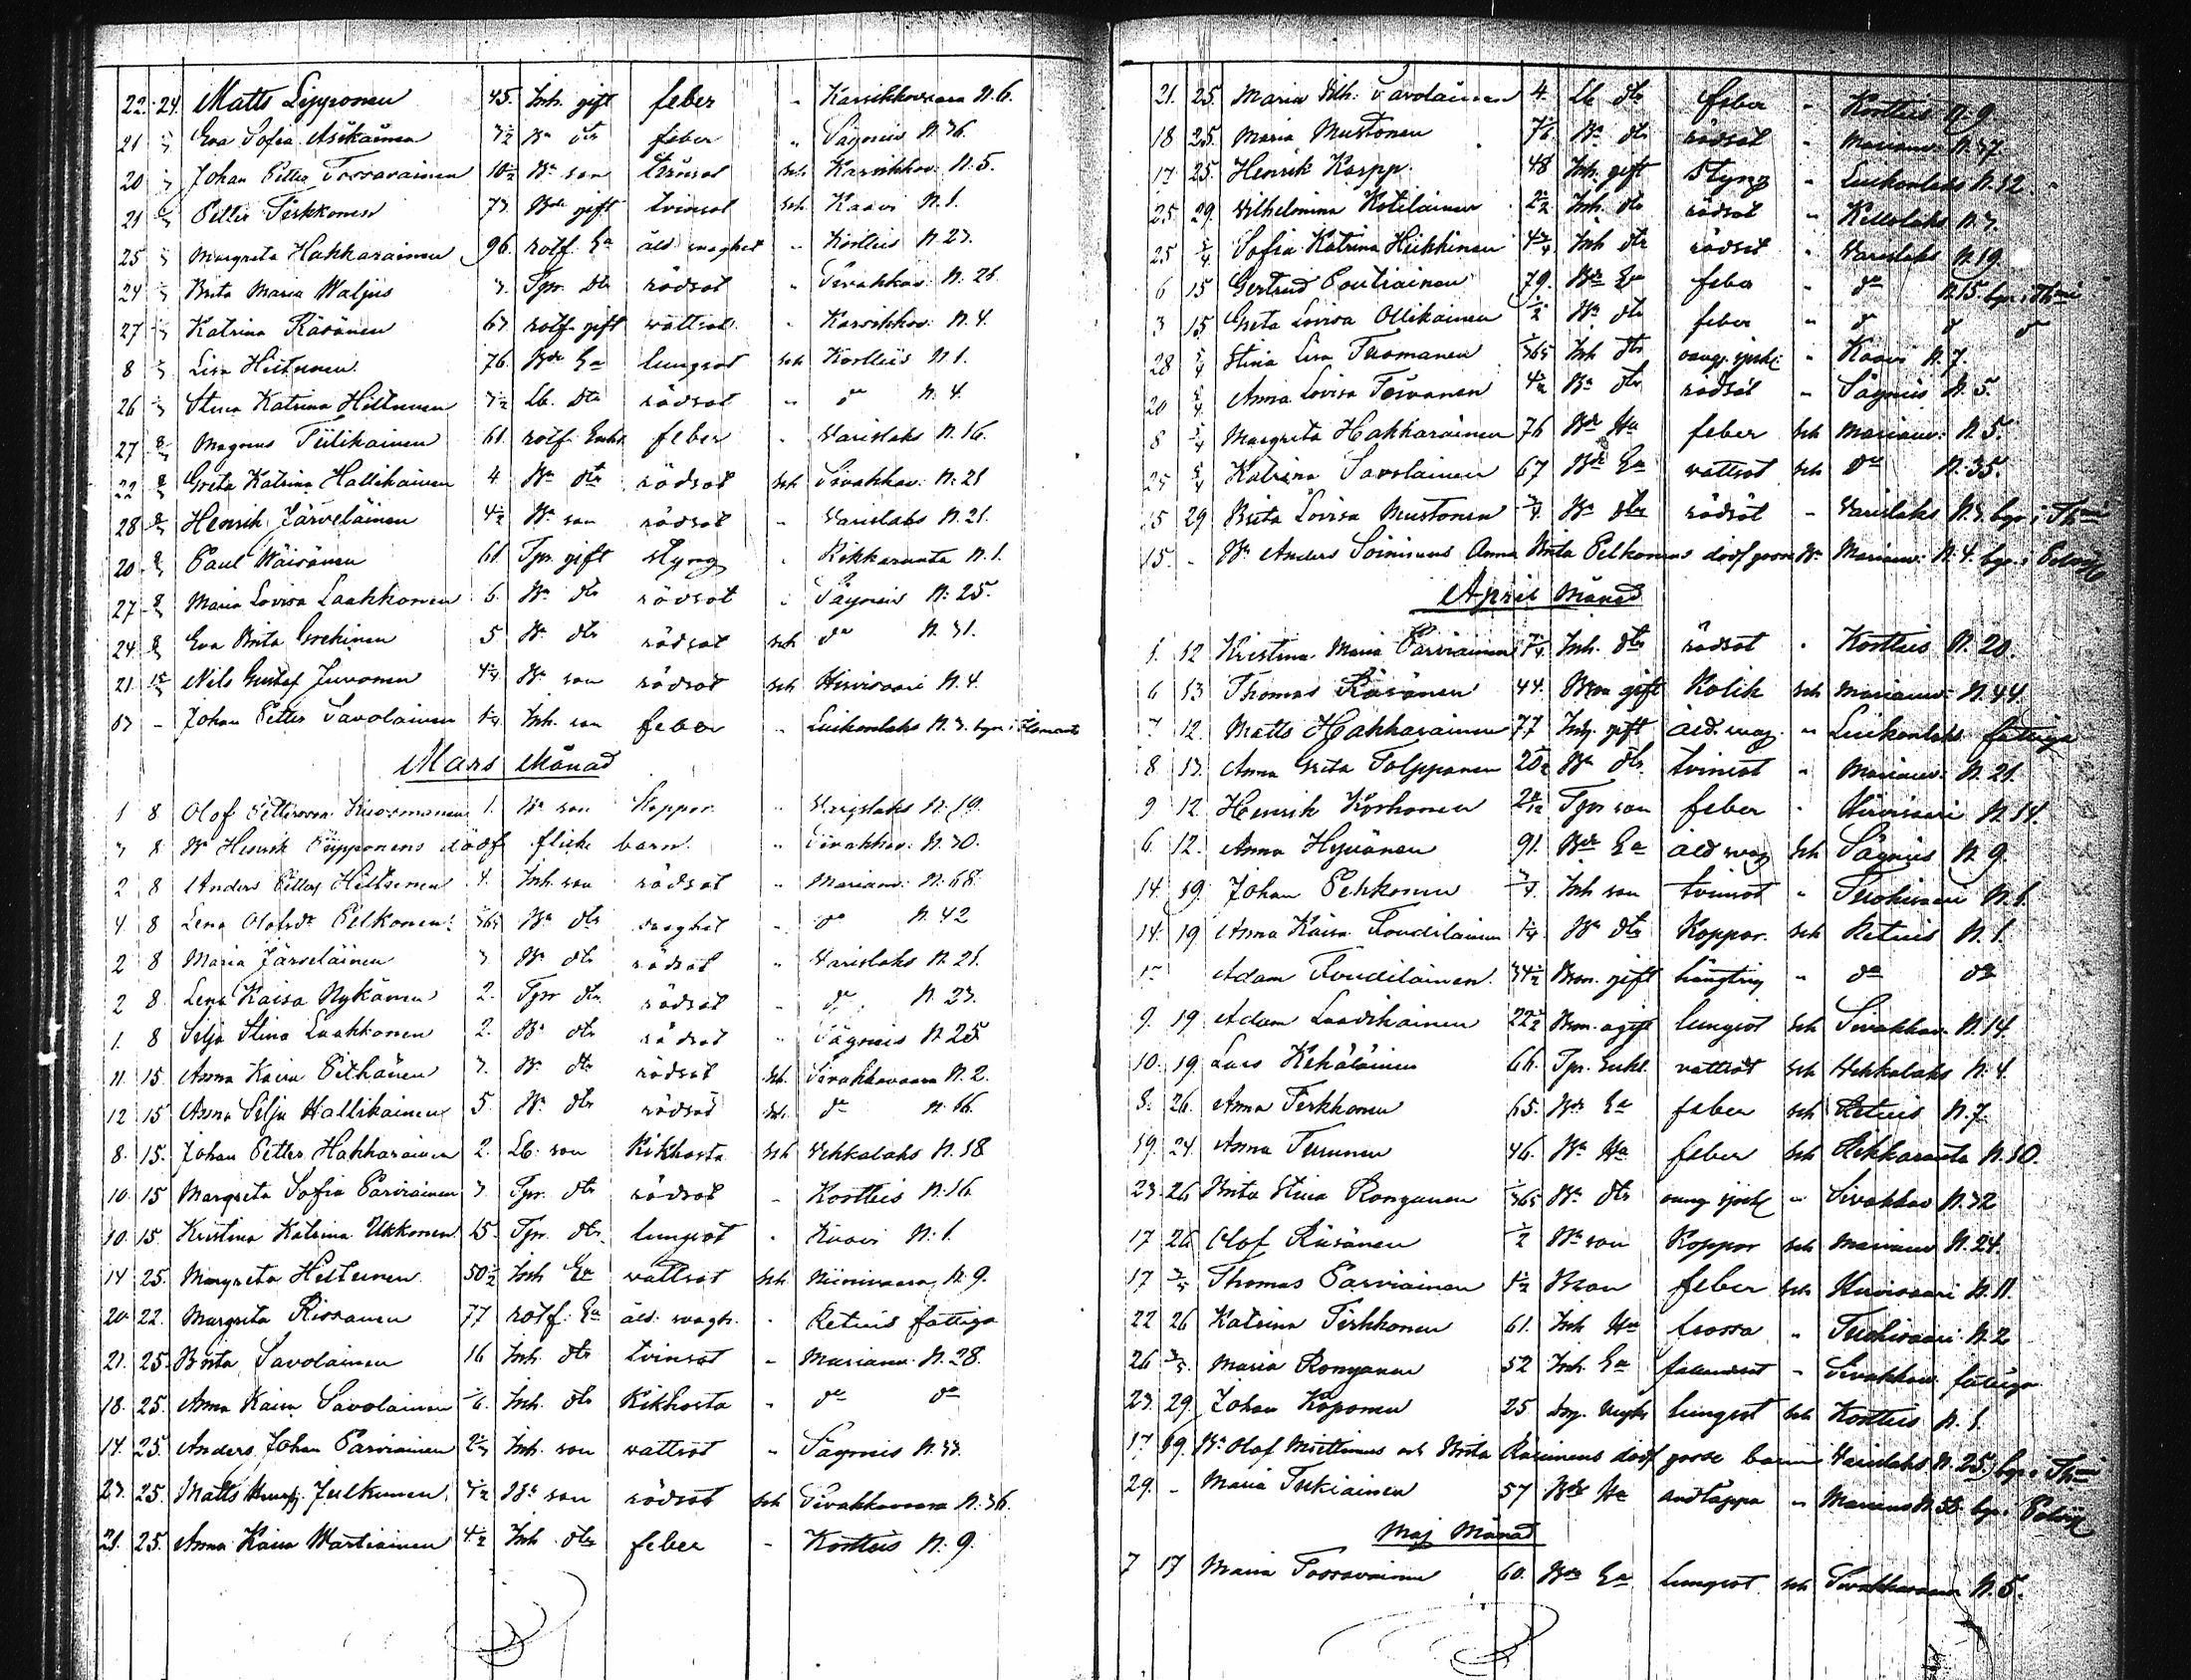 22. 24. Matts Lipponen 45. Inh. gift feber " Karsikkovaara N. 6.
21 Eva Sofia Asikainen 3½ Bn dtr feber " Sägniis N. 36.
20 Johan Petter Tossavainen 10½ Bn son tvinsot sch Karsikkov: N. 5.
21 Petter Pirkkonen 73. Bde gift tvinsot sch Kaavi N. 1.
25 Margreta Hakkarainen 96. rotf. Ea åld. svaghet " Kortteis N. 23.
24 Brita Maria Waljus 3. Tpr. dtr rödsot " Sivakkav. N. 21.
27 Katrina Räsänen 63 rotf. gift vattsot " Karsikkov. N. 4.
8 Lisa Hiltunen 76. Bde Ea lungsot sch Kortteis N. 1.
26 Stina Katrina Hiltunen 3½ Lb. dtr rödsot " do N. 4.
27 Magnus Tiilikainen 61. rotf. Enkl. feber " Varislaks N. 16.
22 Greta Katrina Hallikainen 4 Bn dtr rödsot sch Sivakkav: N. 21
28 Henrik Järveläinen 4½ Bn son rödsot " Varislaks N. 21.
20 Paul Wäisänen 61 Tpr. gift styng " Rikkaranta N. 1.
27 Maria Lovisa Laakkonen 6. Bn dtr rödsot " Sägniis N: 25.
24 Eva Brita 5 Bn dtr rödsot sch do N. 31.
21. Nils Gustaf Juvonen Bn son rödsot sch Hirvisaari N. 4.
13 - Johan Petter Savolainen 1¼ Inh. son feber " Luikonlaks N. 3. bgr. i Ilomants
Mars Månad
1 8 Olof Pettersson Kuosmanen 1. Bn son Koppor " Varislaks N. 19.
3 8 Bn Henrik Piipponens dödf. flicke barn " Sivakkav. N. 30.
2 8 Anders Petter Hiltunen 4. Inh. son rödsot " Mariav: N. 68.
4 8 Lena Olofsdr Pelkonen 3/365 Bn dtr svaghet " do N. 42
2 8 Maria Järveläinen 3 Bn dtr rödsot " Varislaks N. 21.
2 8. Lena Kaisa Nykänen 2. Tpr dtr. rödsot " do N. 23.
1. 8 Selja Stina Laakkonen 2. Bn dtr rödsot " Sägniis N. 25
11. 15. Anna Kaisa Pitkänen 3. Bn dtr rödsot sch. Sivakkavaara N. 2.
12 15 Anna Selja Hallikainen 5. Bn dtr rödsot sch. do N. 16.
8. 15. Johan Petter Hakkarainen 2. Lb. son Kikhosta sch Vehkalaks N. 18
10. 15 Margreta Sofia Parviainen 3 Tpr. dtr rödsot " Kortteis N. 16.
10. 15. Kristina Katrina Ukkonen 15. Tpr. dtr. lungsot " Kaavi N. 1.
14 25. Margreta Hiltunen 50½ Inh Ea vattsot sch. Niinivaara N. 9.
20 22. Margreta Rissanen 77 rotf. Ea åld. svagh. " Retuis fattiga
21. 25. Brita Savolainen 16 Inh. dtr tvinsot " Mariav. N. 28.
18. 25. Anna Kaisa Savolainen 1/6. Inh. dtr Kikhosta " do do
14. 25. Anders Johan Parviainen Inh. son vattsot " Sägniis N. 33.
23. 25. Matts Julkunen 4½ Bn son rödsot sch Sivakkavaara N. 36.
21. 25. Anna Kaisa Wartiainen 4½ Inh dtr feber " Kortteis N. 9.
21. 25. Maria Vilh. Savolainen 4. Lb. dtr feber " Kortteis N. 9
18 25. Maria Mustonen Bn dtr rödsot " Mariav. N. 37
17 25. Henrik Karpp. 48 Inh. gift styng " Luikonlaks N. 12.
25 29. Wilhelmina Kotilainen 2½ Inh. dtr rödsot " Kellolaks N. 3.
25 Sofia Katrina Hiekkinen 4¾ Inh dtr rödsot " Varislaks N. 19.
6 15 Gertrud Poutiainen 79. Bde Ea feber " do N. 15. bgr. i Thmi
3 15 Greta Lovisa Ollikainen ½ Bn dtr feber " do do do
28 Stina Lisa Tuomanen 3/365 Inh dtr oang. sjukd. " Kaavi N. 7.
20 Anna Lovisa Toivanen 4½ Bn dtr rödsot " Sägniis N. 5.
8 Margreta Hakkarainen 76 Bde Ha feber sch Mariav: N. 5.
25 Katrina Savolainen 67 Bde Ea vattsot sch do N. 35.
15 29 Brita Lovisa Mustonen ¾ Bn dtr rödsot " Varislaks N. 3. bgr. i Thmi
15. - Bn Anders Soininens Anna Brita Pelkonens dödf. gosse Bn Mariav: N. 4. bgr. i Polvij
April Månad
1. 12 Kristina Maria Parviainen Inh. dtr rödsot " Kortteis N. 20.
6 13 Thomas Räsänen 44. Bson gift Kolik sch Mariav: N. 44.
7 12. Matts Hakkarainen 77 Inh. gift åld. svag. " Luikonlaks fattiga
8 13. Anna Greta Tolppanen 20½ Bn dtr. tvinsot " Mariav. N. 21.
9 12. Henrik Korhonen Tpr son feber " Hirvisaari N. 14.
6. 12. Anna Hyvönen 91. Bde Ea åld svag sch Sägniis N. 9.
14. 19. Johan Pekkonen ¾ Inh son tvinsot " Tuohisaari N. 1.
14. 19 Anna Kaisa Koudilainen 1¼ Bn dtr Koppor. sch Retuis N. 1.
Adam Koudilainen. 34½ Bson. gift hängtsig " do do
9. 19 Adam Laadikainen 22½ Bson. ogift lungsot sch Sivakkav. N. 14.
10. 19. Lars Kehäläinen 66. Tpr. Enkl. vattsot sch Vehkalaks N. 4.
8. 26. Anna Pirkkonen 65. Bde Ea feber sch Retuis N. 7.
19. 24. Anna Turunen 46. Bn Ha feber sch Rikkaranta N. 10.
23. 26 Brita Stina Ronganen 1/365 Bn dtr oang sjukd " Sivakkav N. 32
17 26 Olof Räsänen ½ Bn son Koppor sch Mariav N. 24.
17 3/5 Thomas Parviainen 1½ Bson feber sch Hirvisaari N. 11.
22 26 Katrina Pirkkonen 61. Inh Ha frossa " Tuohisaari N. 2
26 3/5. Maria Ronganen 52 Inh. Ea fallandsot " Sivakkav. fattiga
23. 29 Johan Koponen 25 lungsot sch Kortteis N. 1.
17 19. Bn Olof Miettinens och Brita Räsänens dödf gosse barn Varislaks N. 25. bgr. i Thmi
29. - Maria Tukiainen 57 Bde Ha andtäppa " Mariav N. 55. bgr. i Polvij
Maj Månad
7 17 Maria Tossavainen 60. Bde Ea lungsot sch Sivakkavaara N. 5.